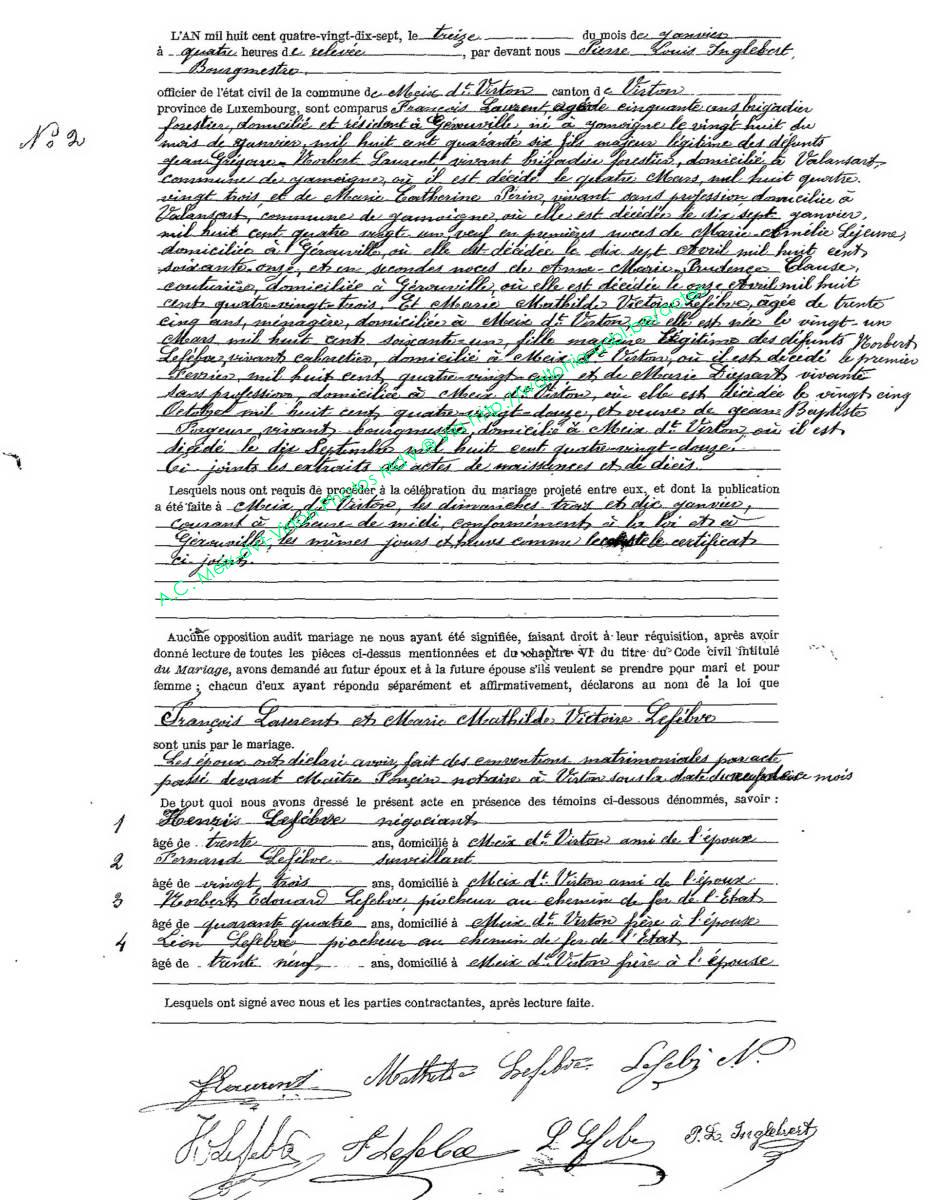 L'AN mil huit cent quatre-vingt-dix-sept, le treize du mois de janvier
à quatre heures de relevée, par devant nous Pierre Louis Inglebert,
Bourgmestre,
officier de l'état civil de la commune de Meix dt Virton canton de Virton
province de Luxembourg, sont comparus François Laurent, agé de cinquante ans brigadier
N° 2
forestier, domicilié et résidant à Gérouville, né à Jamoigne le vingt huit du
mois de janvier, mil huit cent quarante six fils majeur légitime des défunts
Jean Grégoire Norbert Laurent, vivant brigadier forestier, domicilié à Valansart,
commune de Jamoigne, où il est décédé le quatre Mars, mil huit quatre
vingt trois, et de Marie Catherine Perin, vivant sans profession, domiciliée à
Valansart, commune de Jamoigne, où elle est décédée le dix sept janvier,
mil huit cent quatre vingt un, veuf en premières noces de Marie Amélie Lejeune,
domiciliée à Gérouville, où elle est décédée le dix sept Avril mil huit cent
soixante-onze, et en secondes noces de Anne-Marie Prudence Clause,
couturière, domiciliée à Gérouville, où elle est décédée le onze Avril mil huit
cent quatre-vingt-trois. Et Marie Mathilde Victoire Lefèbve, âgée de trente
cinq ans, ménagère, domiciliée à Meix dt Virton où elle est née le vingt-un
Mars, mil huit cent soixante-un, fille majeure légitime des défunts Norbert
Lefèbve, vivant cabaretier, domicilié à Meix dt Virton, où il est décédé le premier
Février, mil huit cent, quatre-vingt et de Marie vivante
sans profession, domiciliée à Meix dt Virton, où elle est décédée le vingt cinq
Octobre mil huit cent, quatre-vingt-douze, et veuve de Jean Baptiste
vivant bourgmestre, domicilié à Meix dt Virton, où il est
décédé le dix Septembre mil huit cent quatre-vingt-douze.
Ci joints les extraits des actes de naissances et de décès.
Lesquels nous ont requis de procéder à la célébration du mariage projeté entre eux, et dont la publication
a été faite à Meix dt Virton, les dimanches trois et dix janvier,
courant à l'heure de midi, conformément à la loi et à
Gérouville, les mêmes jours et heures comme le constate le certificat
ci joint.
A.C. Meix-dvt-Virton Photos MaV@ via http://wallonia-asbl.be/actes
Aucune opposition audit mariage ne nous ayant été signifiée, faisant droit à leur réquisition, après avoir
donné lecture de toutes les pièces ci-dessus mentionnées et du chapitre VI du titre du Code civil intitulé
du Mariage, avons demandé au futur époux et à la future épouse s'ils veulent se prendre pour mari et pour
femme ; chacun d'eux ayant répondu séparément et affirmativement, déclarons au nom de la loi que
François Laurent et Marie Mathilde Victoire Lefèbve
sont unis par le mariage.
Les époux ont déclaré avoir fait des conventions matrimoniales par acte
passé devant Maître Ponçin notaire à Virton sous la date du neuf de ce mois
De tout quoi nous avons dressé le présent acte en présence des témoins ci-dessous dénommés, savoir :
1 Henri Lefèbve négociant
âgé de trente ans, domicilié à Meix dt Virton ami de l'époux
2 Fernand Lefèbve surveillant
âgé de vingt trois ans, domicilié à Meix dt Virton ami de l'époux
3 Norbert Edouard Lefèbve, piocheur au chemin de fer de l'Etat
âgé de quarante quatre ans, domicilié à Meix dt Virton frère à l'épouse
4 Léon Lefèbve piocheur au chemin de fer de l'Etat,
âgé de trente neuf ans, domicilié à Meix dt Virton frère à l'épouse
Lesquels ont signé avec nous et les parties contractantes, après lecture faite.
FLaurent Mathilde Lefebve Lefebve N.
H Lefebve F Lefebve L Lefebve P. L. Inglebert